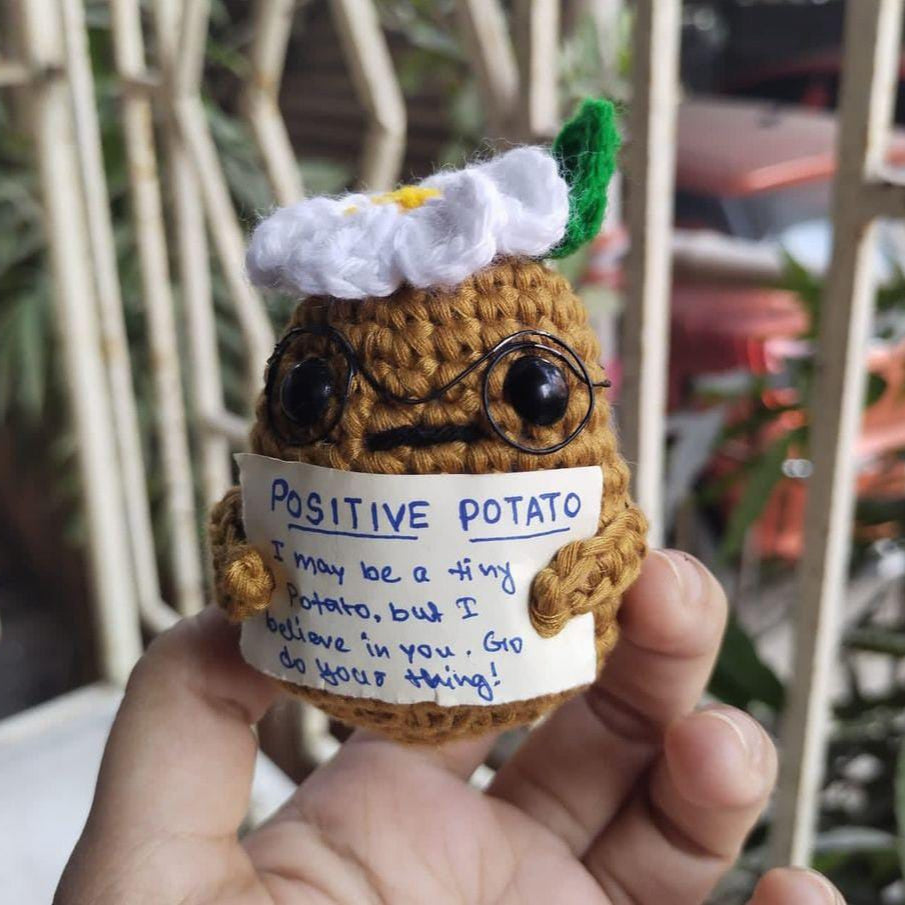 POSITIVE POTATO
I may be a tiny
Potato, but I
believe in you. Go
do your thing!